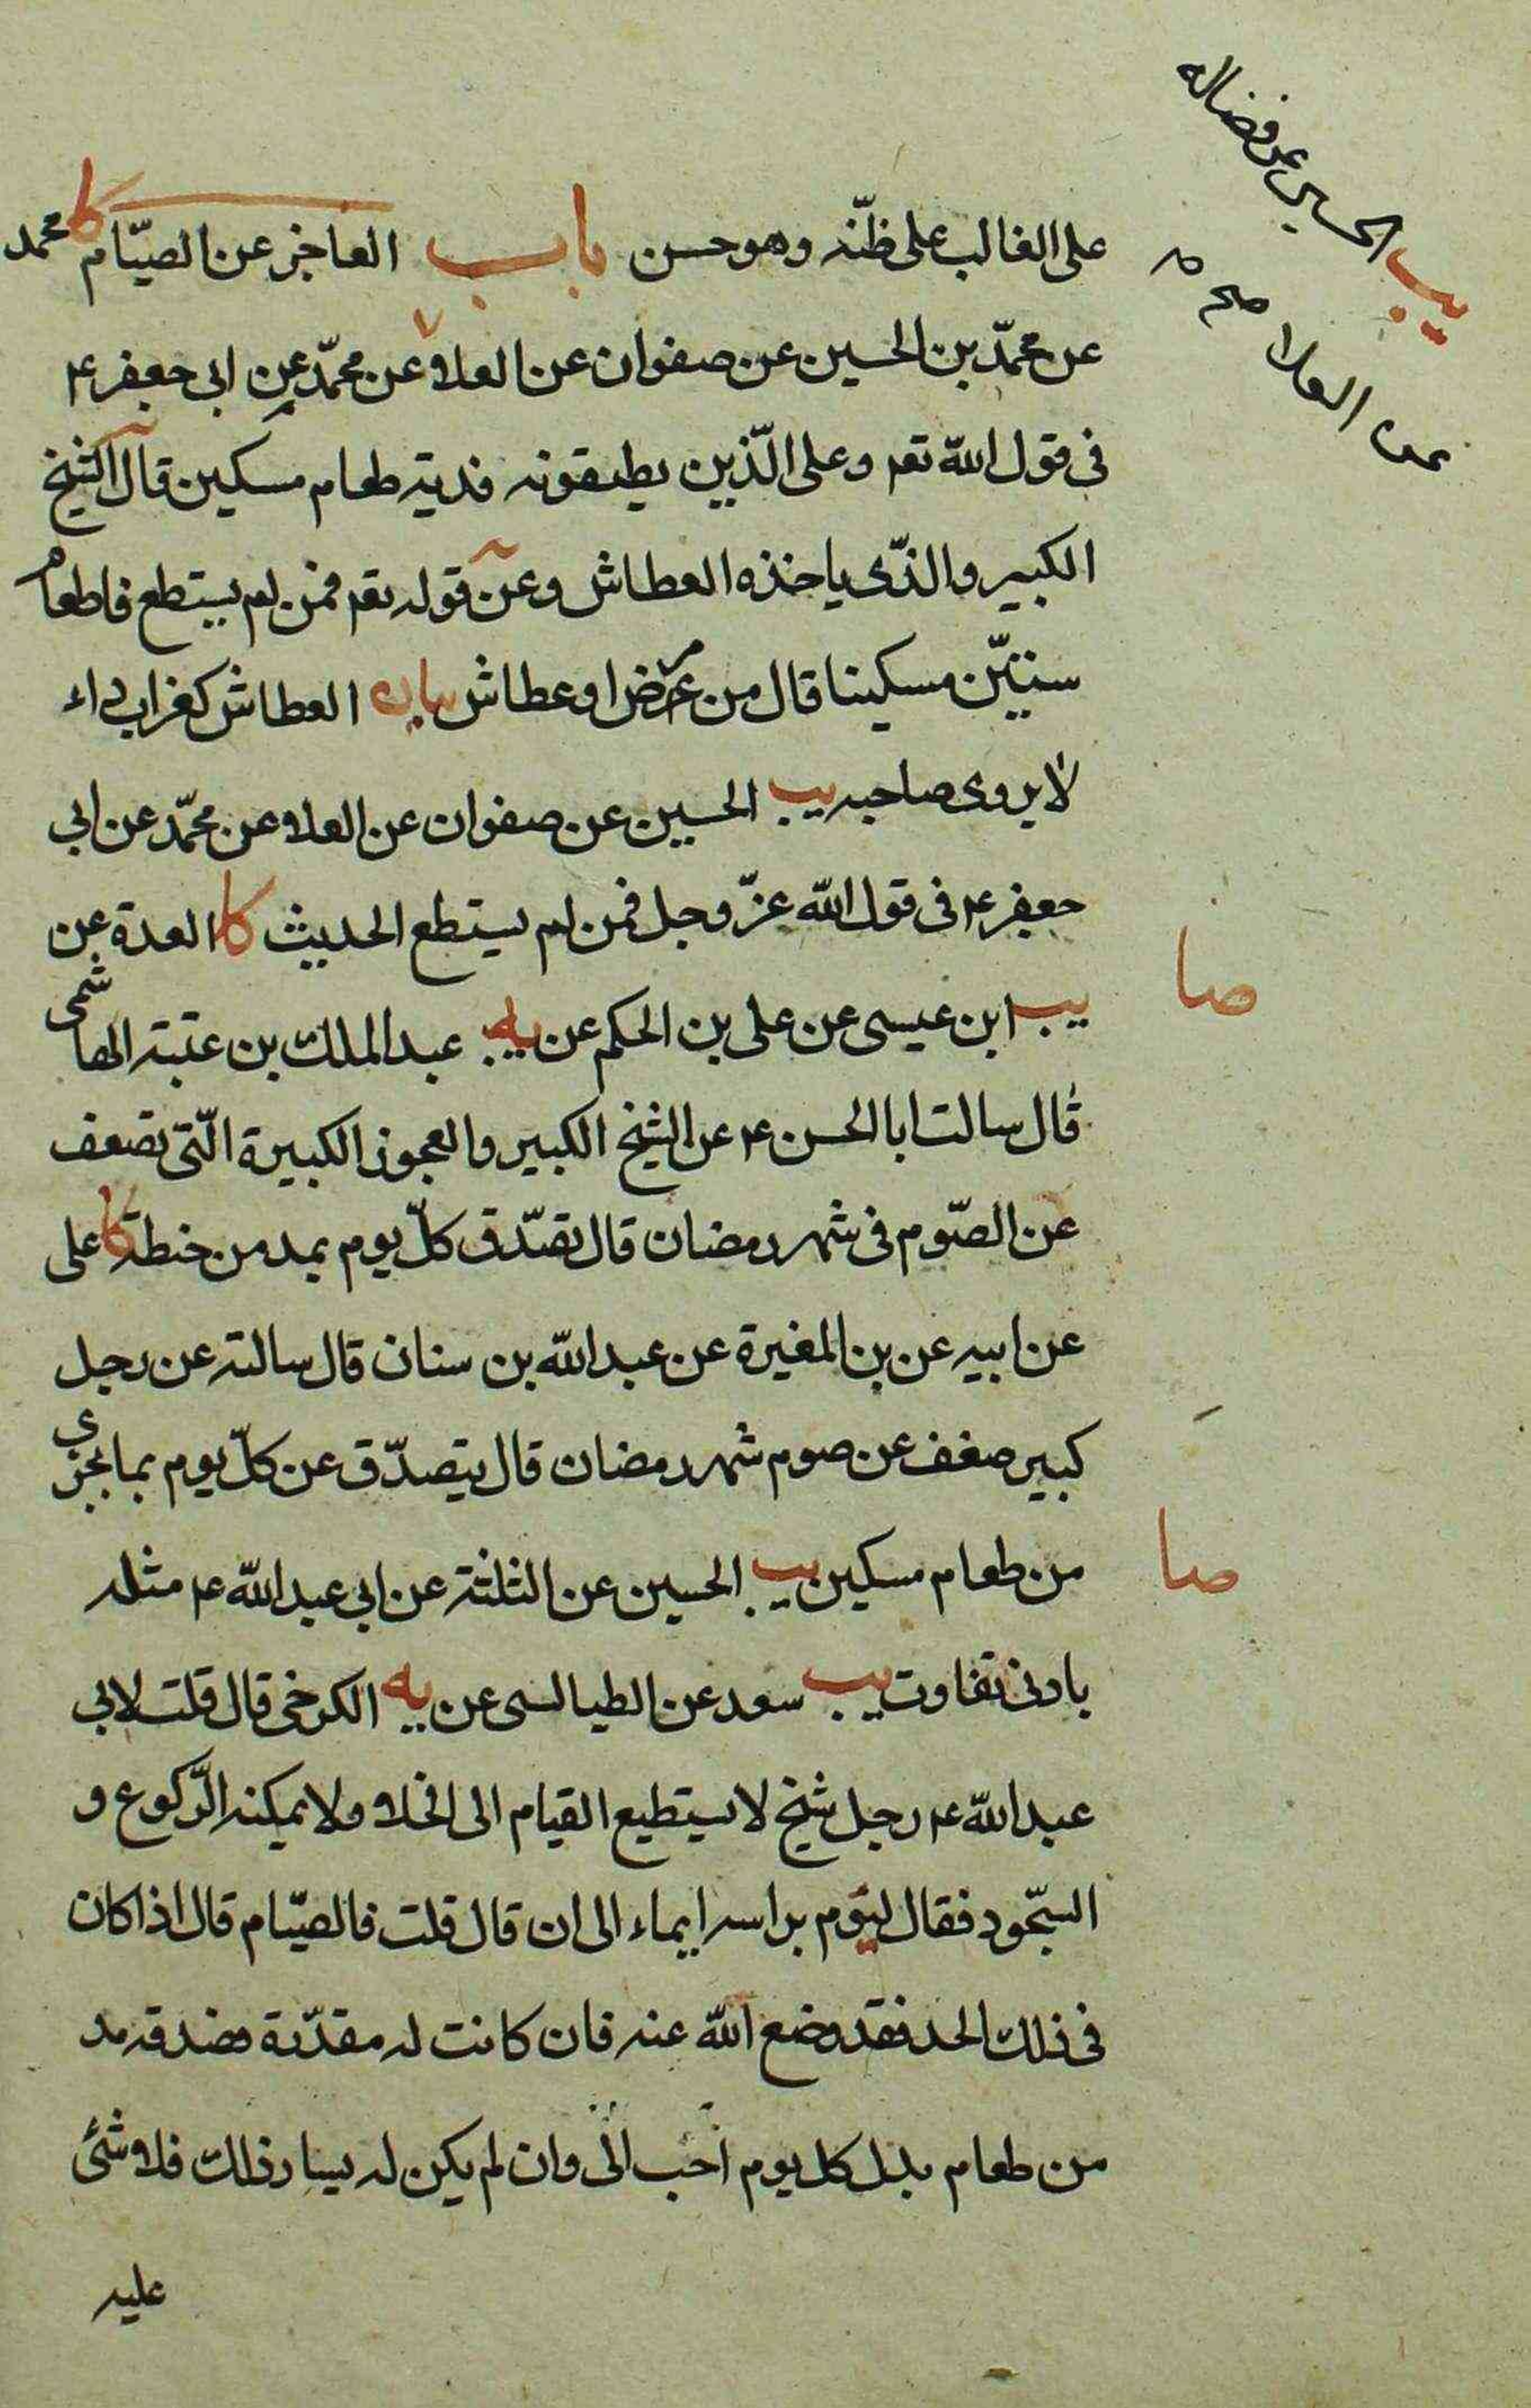 يب الحسين عن فضاله
عن العلا صح م
على الغالب على ظنّه وهو حسن باب العاجز عن الصيّام كا محمد
عن محمّد بن الحسين عن صفوان عن العلاء عن محمّد عن ابى جعفر ع
فى قول الله تعم وعلى الّذين يطيقونه فدية طعام مسكين قال الشيخ
الكبير والذّى ياخذه العطاش وعن قوله تعم فمن لم يستطع فاطعام
ستيّن مسكينا قال من مرض او عطاش بيان العطاش كغراب داء
لا يروى صاحبه يب الحسين عن صفوان عن العلاء عن محمّد عن ابى
جعفر ع فى قول الله عزّ وجل فمن لم يستطع الحديث كا العدة عن
صا
يب ابن عيسى عن على بن الحكم عن يه عبد الملك بن عتبة الهاشمى
قال سالت ابا الحسن ع عن الشيخ الكبير والعجوز الكبيرة الّتى تضعف
عن الصّوم فى شهر رمضان قال تصّدق كلّ يوم بمد من حنطة كا على
عن ابيه عن بن المغيرة عن عبد الله بن سنان قال سالته عن رجل
كبير ضعف عن صوم شهر رمضان قال يتصدّق عن كلّ يوم بما يجزى
صا
من طعام مسكين يب الحسين عن الثلثة عن ابى عبد الله ع مثله
بادنى تفاوت يب سعد عن الطيالسى عن يه الكرخى قال قلت لابى
عبد الله ع رجل شيخ لا يستطيع القيام الى الخلاء ولا يمكنه الرّكوع و
السّجود فقال ليوم براسه ايماء الى ان قال قلت فالصيّام قال اذا كان
فى ذلك الحد فقد وضع الله عنه فان كانت له مقدّرة فصدقه مد
من طعام بدل كل يوم احب الىّ وان لم يكن له يسار ذلك فلا شئى
عليه